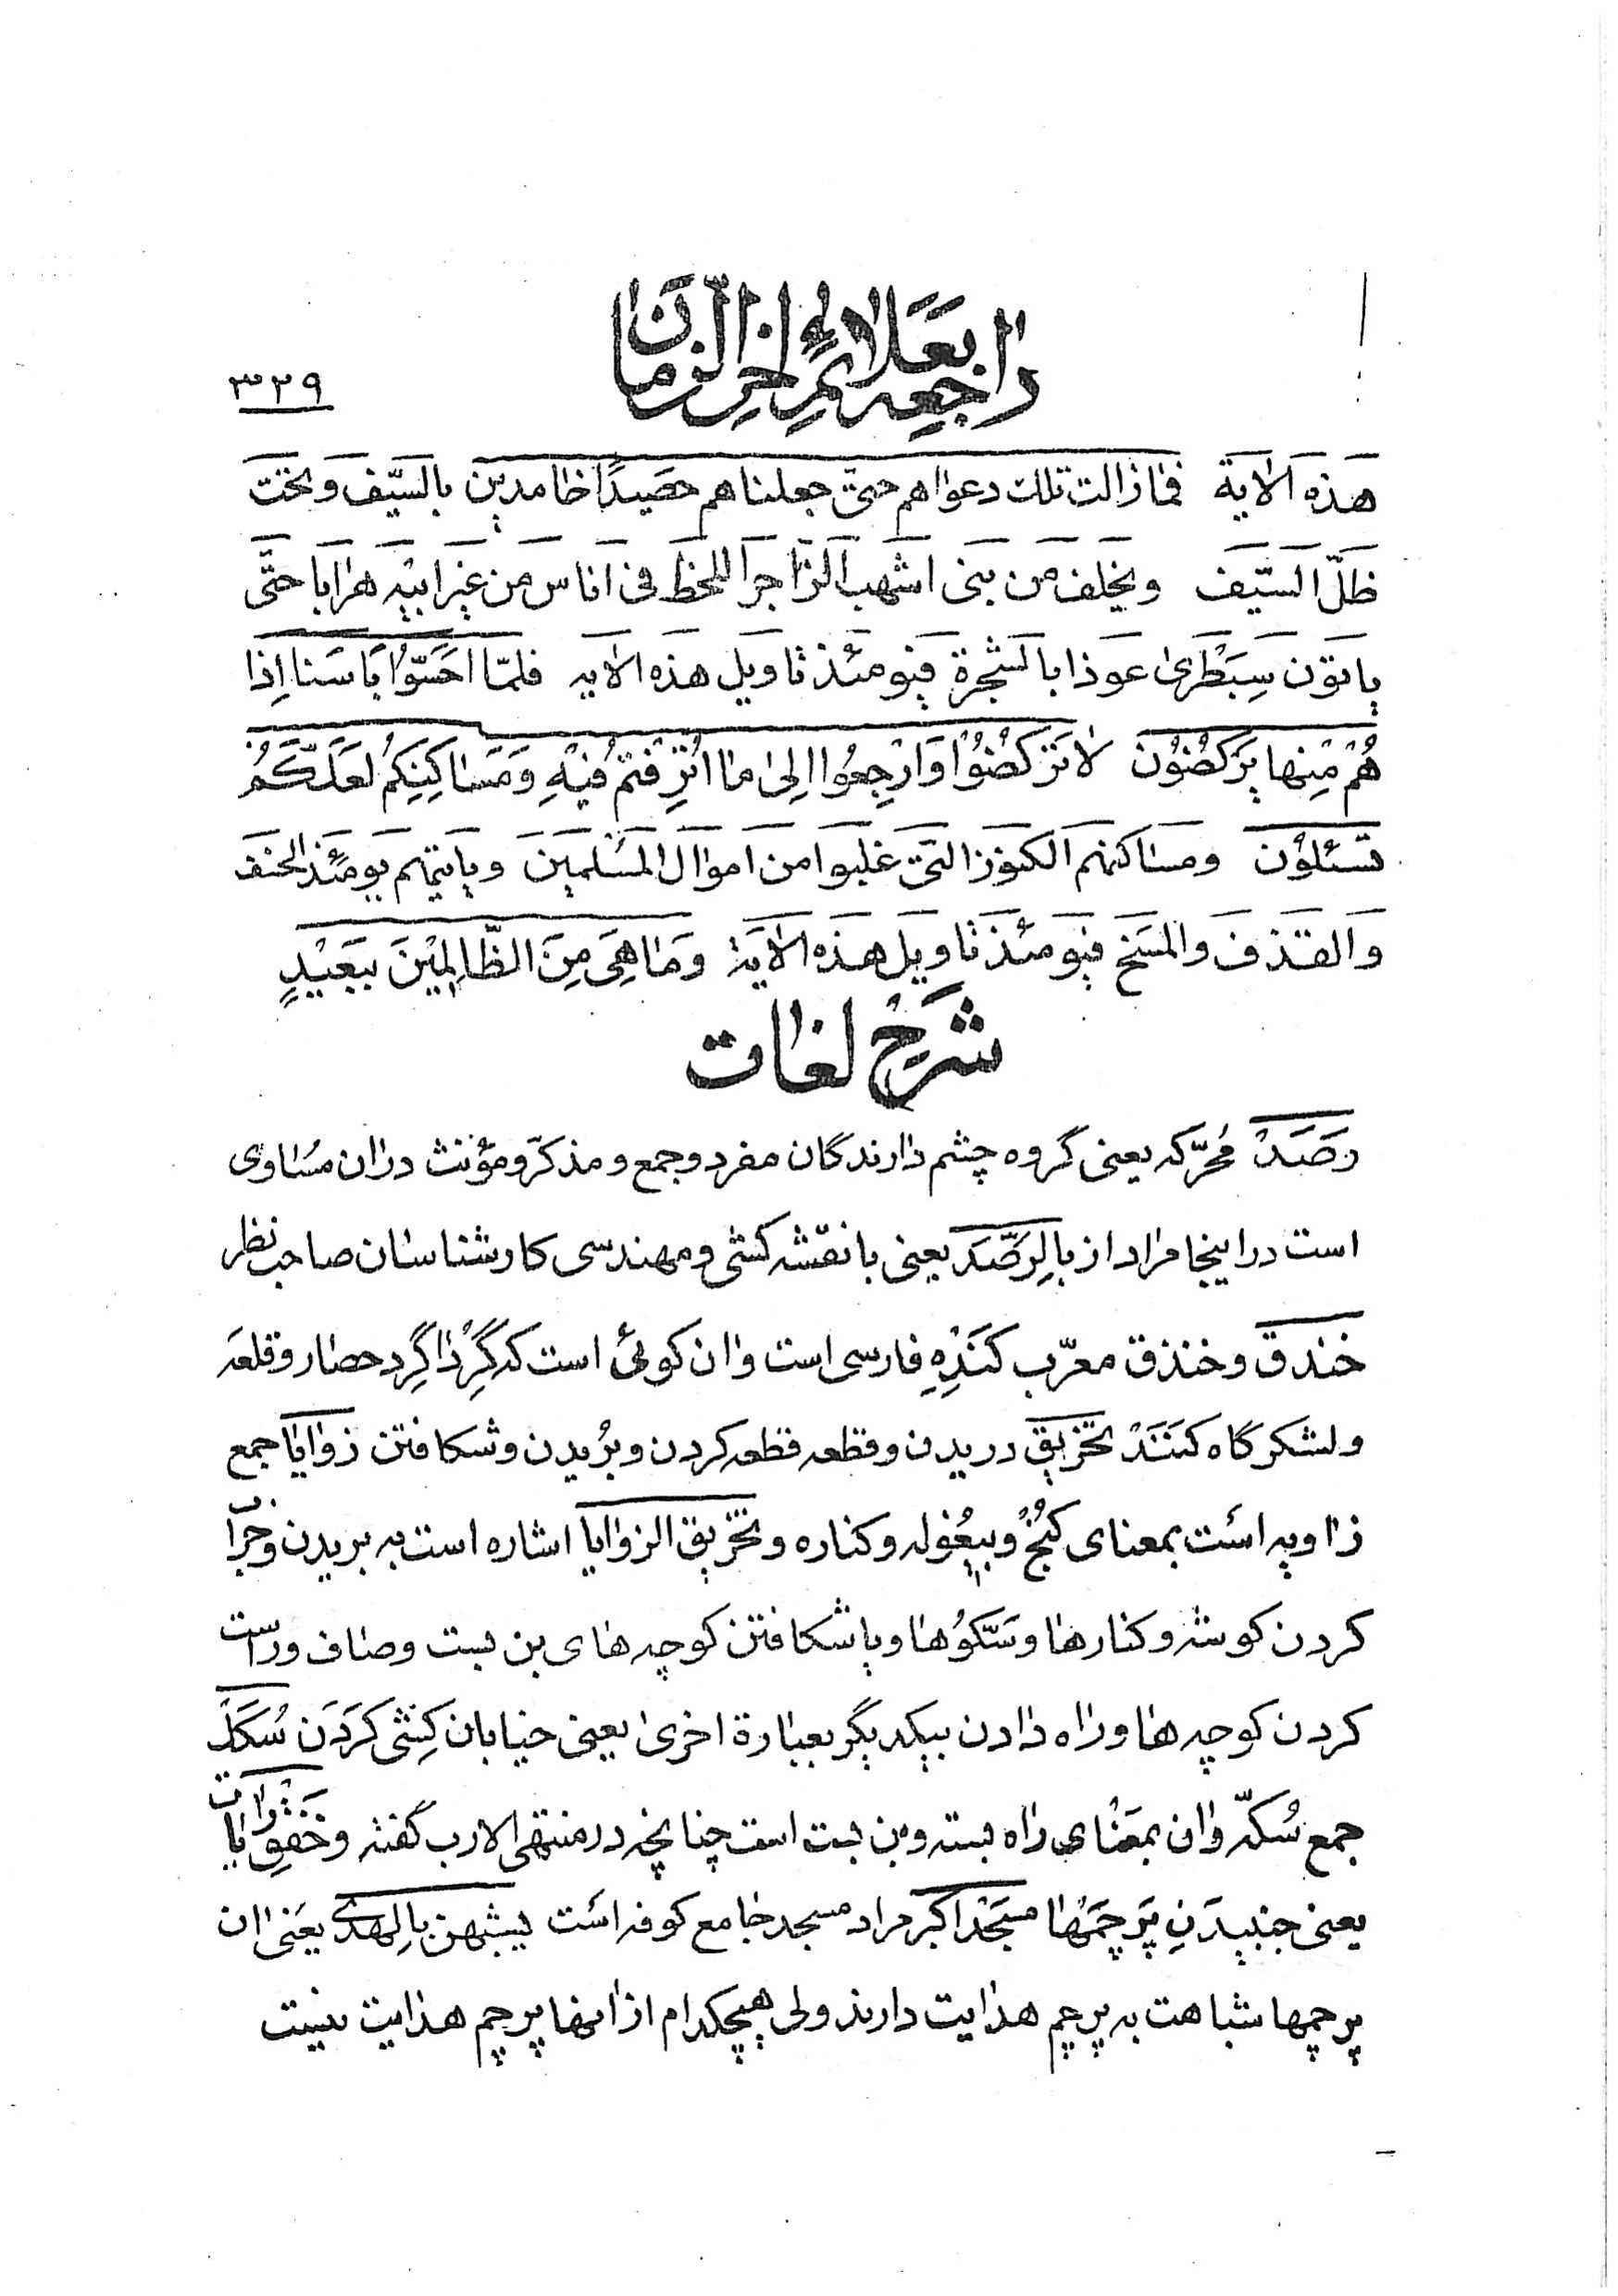 راجعه بعلائم اخر الزمان
۳۲۹
هَذه الایَة فمازالت تلك دعواهم حتی جعلناهم حصَیدًا خامدین بالسَّیف وتحتَ
ظلّ السَّیف ویخلف من بنی اشهب الزاجر اللحظ فی اناس من غیر ابیه هرابا حتّی
یاتون سِبَطْری عوذا بالشجرة فیومئذ تاویل هذه الایه فلمّا احَسّوُا بَاسَنا اِذا
هُمْ مِنْها یَرْکضُوُن لا تَرْکُضُوُا وَارْجِعُوا اِلی ما اتْرِفْتمْ فیْهِ وَمَساکِنِکمُ لَعَلَّکُمْ
تسئلوُن ومساکنهم الکنوز التی غلبوا من اموال المسلمین ویاتیهم یومئذ الخسف
والقذف والمسخ فیومئذ تاویل هذه الایَة وَما هِیَ مِنَ الظّالِمیْنَ ببَعیْدٍ
شَرحُ لغات
رَصَدْ مُحرّکه یعنی گروه چشم دارندگان مفرد وجمع ومذکرّ ومؤنث دران مساوی
است در اینجا مراد از بالِرَصَّد یعنی با نقشه کشی ومهندسی کارشناسان صاحب نظر
خندق وخندق معرّب کَنَدِهِ فارسی است وان کوئی است که گِرْداگِرد حصار وقلعه
ولشکرگاه کنَنَدْ تخریق دریدن وقطعه قطعه کردن وبرُیدن وشکافتن زوایا جمع
زاویه است بمعنای کُنْجْ وبیغُوله وکناره وتخریق الزوایا اشاره است به بریدن وخراب
کردن کوشه وکنارها وسَکّوُها ویا شکافتن کوچه های بن بست وصاف وراست
کردن کوچه ها وراه دادن بیکدیگر بعبارة اخری یعنی خیابان کِشی کرَدَن سُکَكْ
جمع سُکّه وان بمعَنای راه بسته وبن بست است چنانچه در منتهی الارب گفته وخَفْقِ رایات
یعنی جنبیدَنِ پَرچمَها مسجدْ اکبر مراد مسجد جامع کوفه است یشبهن بِالهدی یعَنی ان
پرچمها شباهت به پرچم هدایت دارند ولی هیچکدام از انها پرچم هدایت نیست